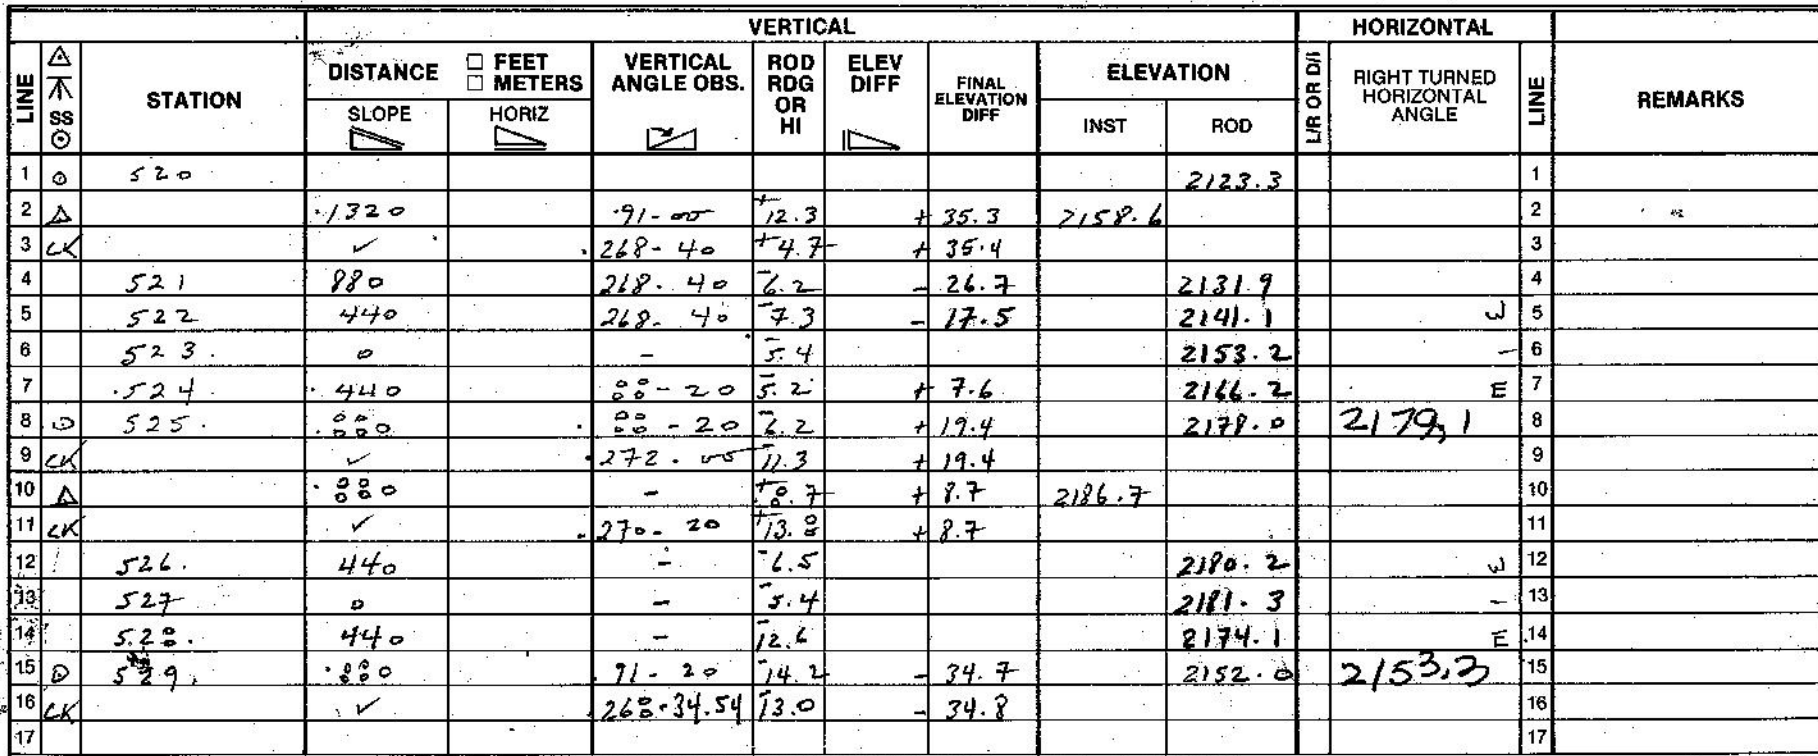 VERTICAL HORIZONTAL
LINE SS STATION DISTANCE FEET METERS VERTICAL ANGLE OBS. ROD RDG OR HI ELEV DIFF FINAL ELEVATION DIFF ELEVATION L/R OR D/I RIGHT TURNED HORIZONTAL ANGLE LINE REMARKS
SLOPE HORIZ INST ROD
1 520 2123.3 1
2 1320 91-00 +12.3 +35.3 2158.6 2
3 CK ✓ 268-40 +4.7 +35.4 3
4 521 880 268-40 -6.2 -26.7 2131.9 4
5 522 440 268-40 -7.3 -17.5 2141.1 W 5
6 523. 0 - -5.4 2153.2 - 6
7 524 440 88-20 -5.2 +7.6 2166.2 E 7
8 525. 880 88-20 -6.2 +19.4 2178.0 2179.1 8
9 CK ✓ 272-00 -11.3 +19.4 9
10 880 - +8.7 +8.7 2186.7 10
11 CK ✓ 270-20 +13.8 +8.7 11
12 526. 440 - -6.5 2180.2 W 12
13 527 0 - -5.4 2181.3 - 13
14 528. 440 - -12.6 2174.1 E 14
15 529. 880 91-20 -14.2 -34.7 2152.0 2153.3 15
16 CK ✓ 268-34.54 -13.0 -34.8 16
17 17